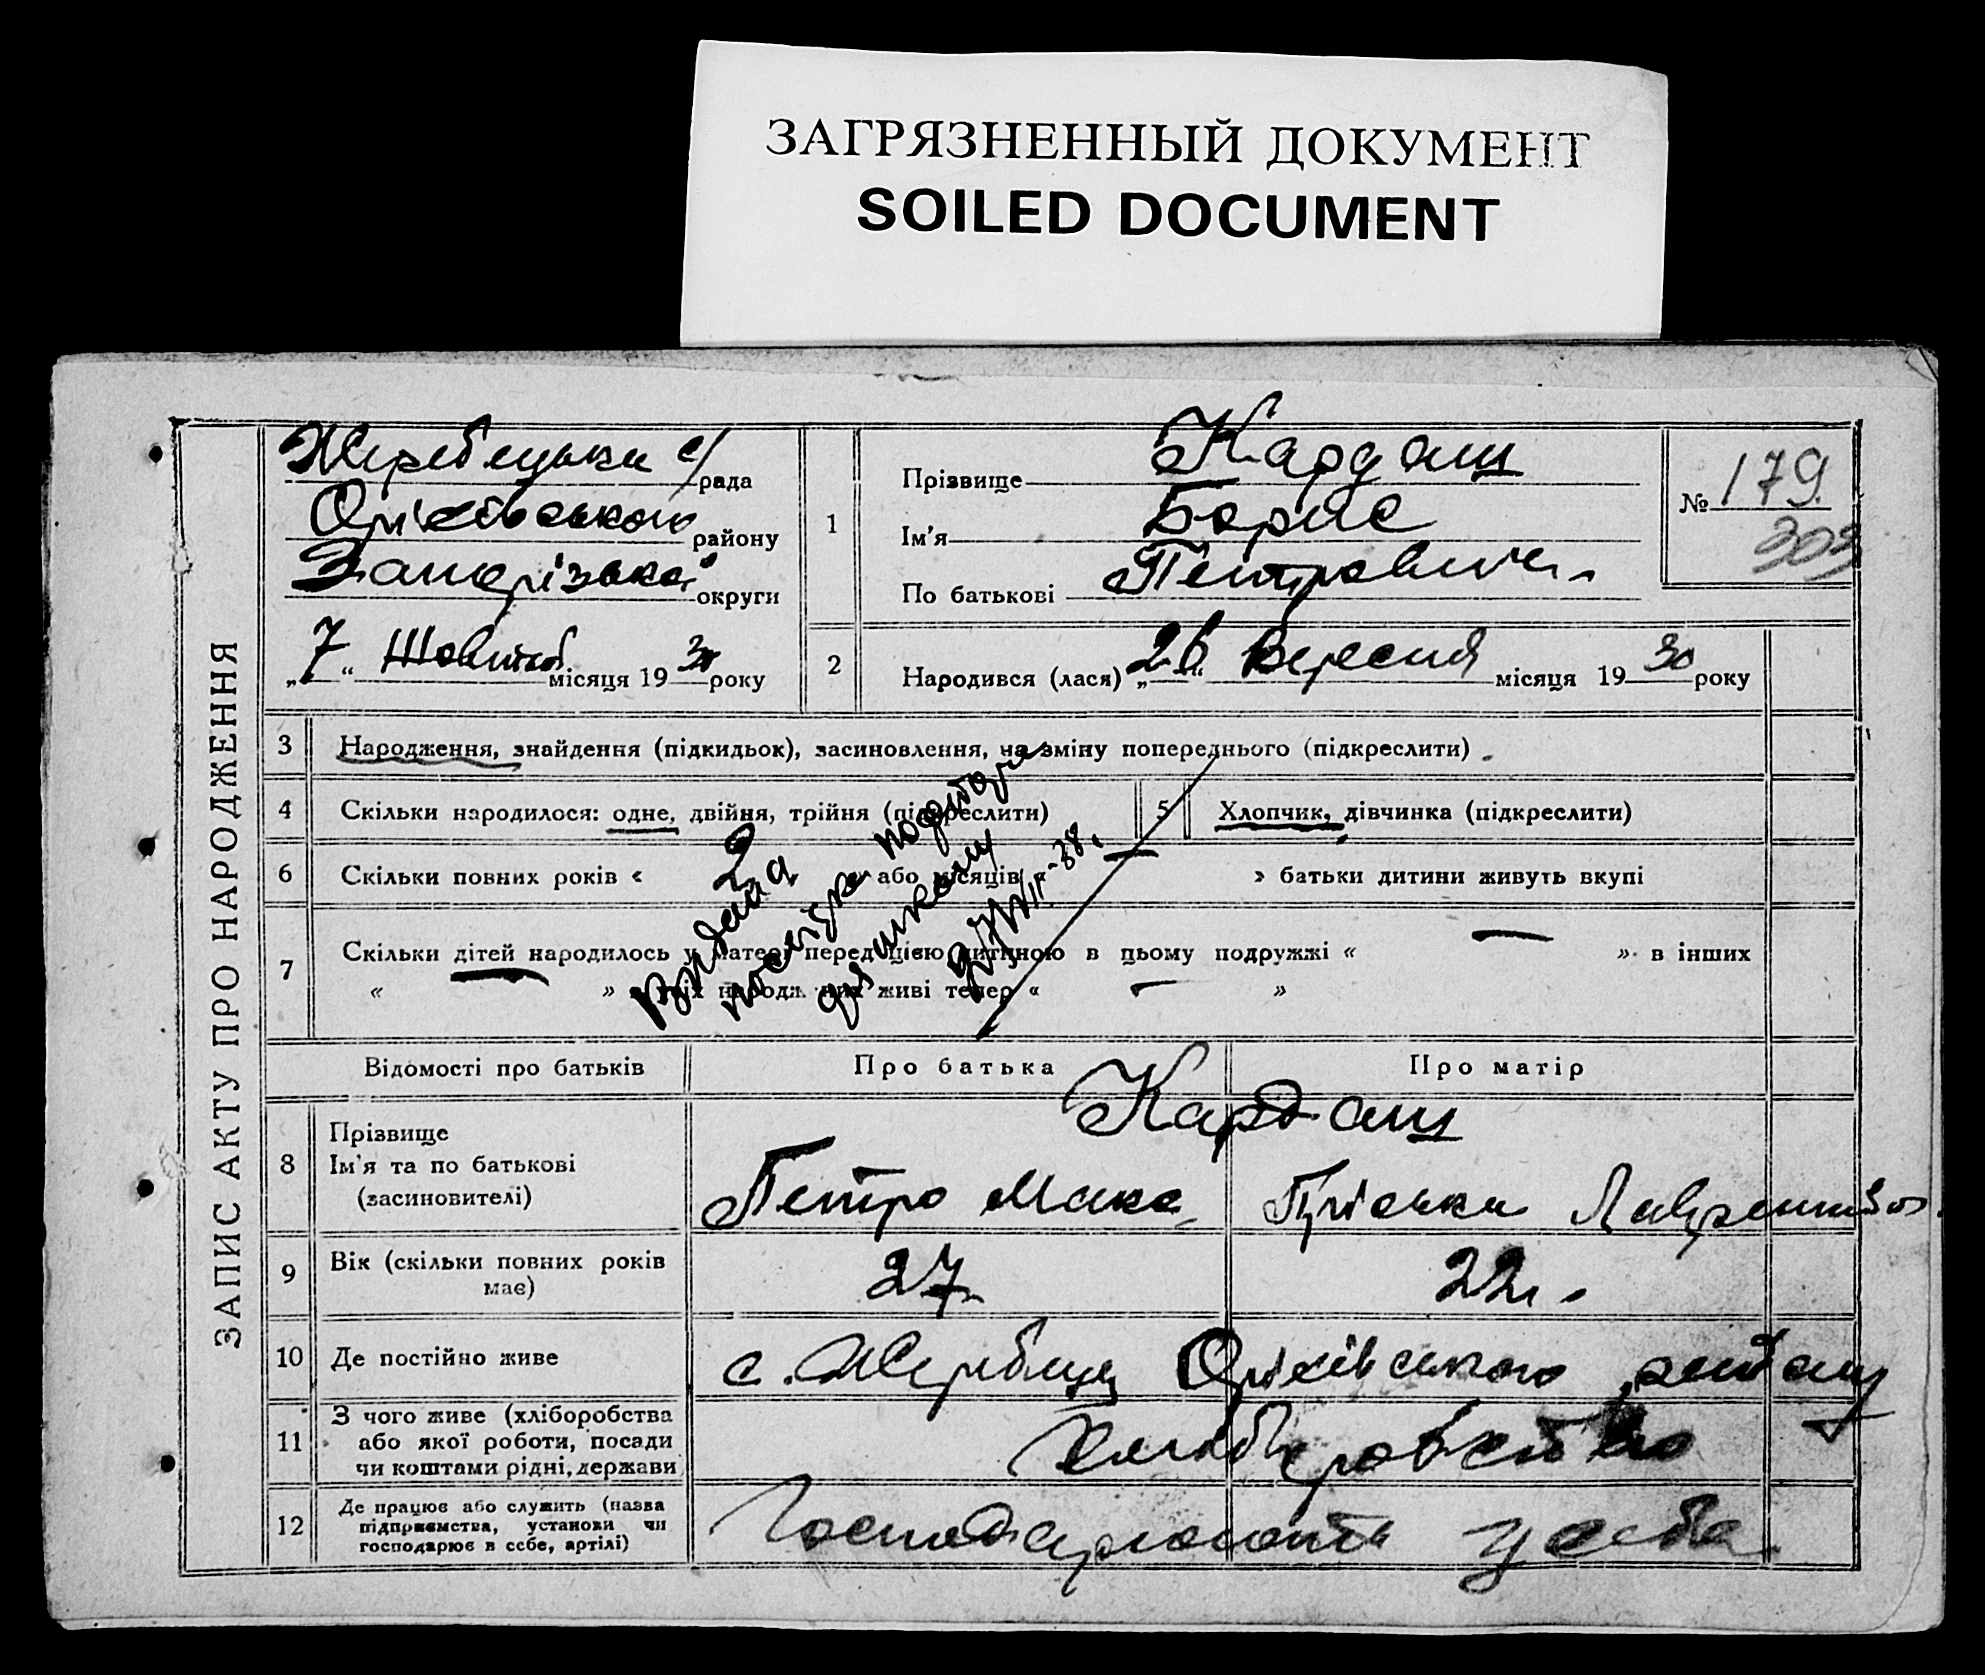 ЗАГРЯЗНЕННЫЙ ДОКУМЕНТ
SOILED DOCUMENT
ЗАПИС АКТУ ПРО НАРОДЖЕННЯ
Жеребецька с/рада
Оріхівського району
Запорізької округи
„7“ Жовтня місяця 1930 року
1
Прізвище Кардаш
Ім'я Борис
По батькові Петрович
№ 179
303
2
Народився (лася) „26“ Вересня місяця 1930 року
3 Народження, знайдення (підкидьок), засиновлення, на зміну попереднього (підкреслити)
4 Скільки народилося: одне, двійня, трійня (підкреслити)
5 Хлопчик, дівчинка (підкреслити)
6 Скільки повних років « 2 » або місяців « — » батьки дитини живуть вкупі
7 Скільки дітей народилось у матері перед цією дитиною в цьому подружжі « — » в інших
« » всіх народж. них живі тепер « — »
Видана
посвідка
для школи
Відомості про батьків
Про батька
Про матір
8 Прізвище
Ім'я та по батькові
(засиновителі)
Кардаш
Петро Макс
Пріська
9 Вік (скільки повних років
має)
27
22
10 Де постійно живе
с. Жеребець Оріхівського району
11 З чого живе (хліборобства
або якої роботи, посади
чи коштами рідні, держави
Хліборобство
12 Де працює або служить (назва
підприємства, установи чи
господарює в себе, артілі)
Господарюють у себе